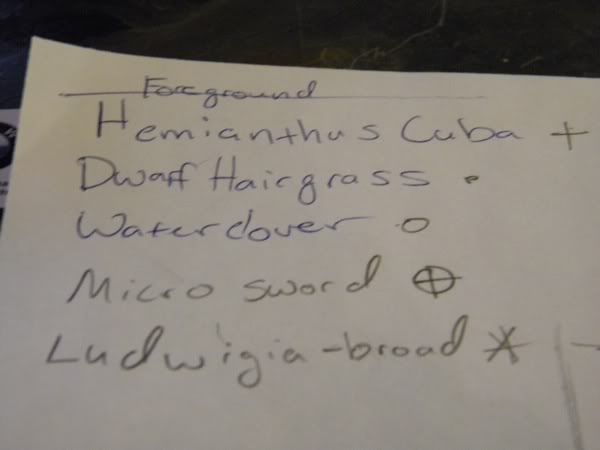 Foreground
Hemianthus Cuba +
Dwarf Hairgrass •
Waterclover ○
Micro sword ⊕
Ludwigia-broad *